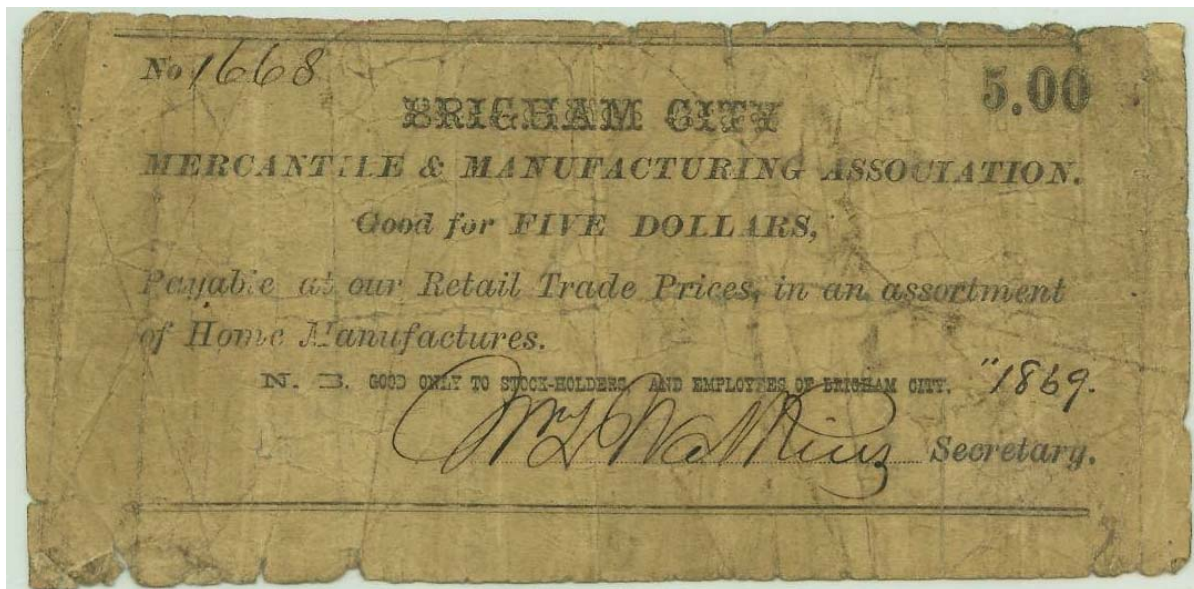 No 1668
5.00
BRIGHAM CITY
MERCANTILE & MANUFACTURING ASSOCIATION.
Good for FIVE DOLLARS,
Payable at our Retail Trade Prices, in an assortment
of Home Manufactures.
N. B. GOOD ONLY TO STOCK-HOLDERS AND EMPLOYEES OF BRIGHAM CITY. "1869.
Wm L Watkins Secretary.